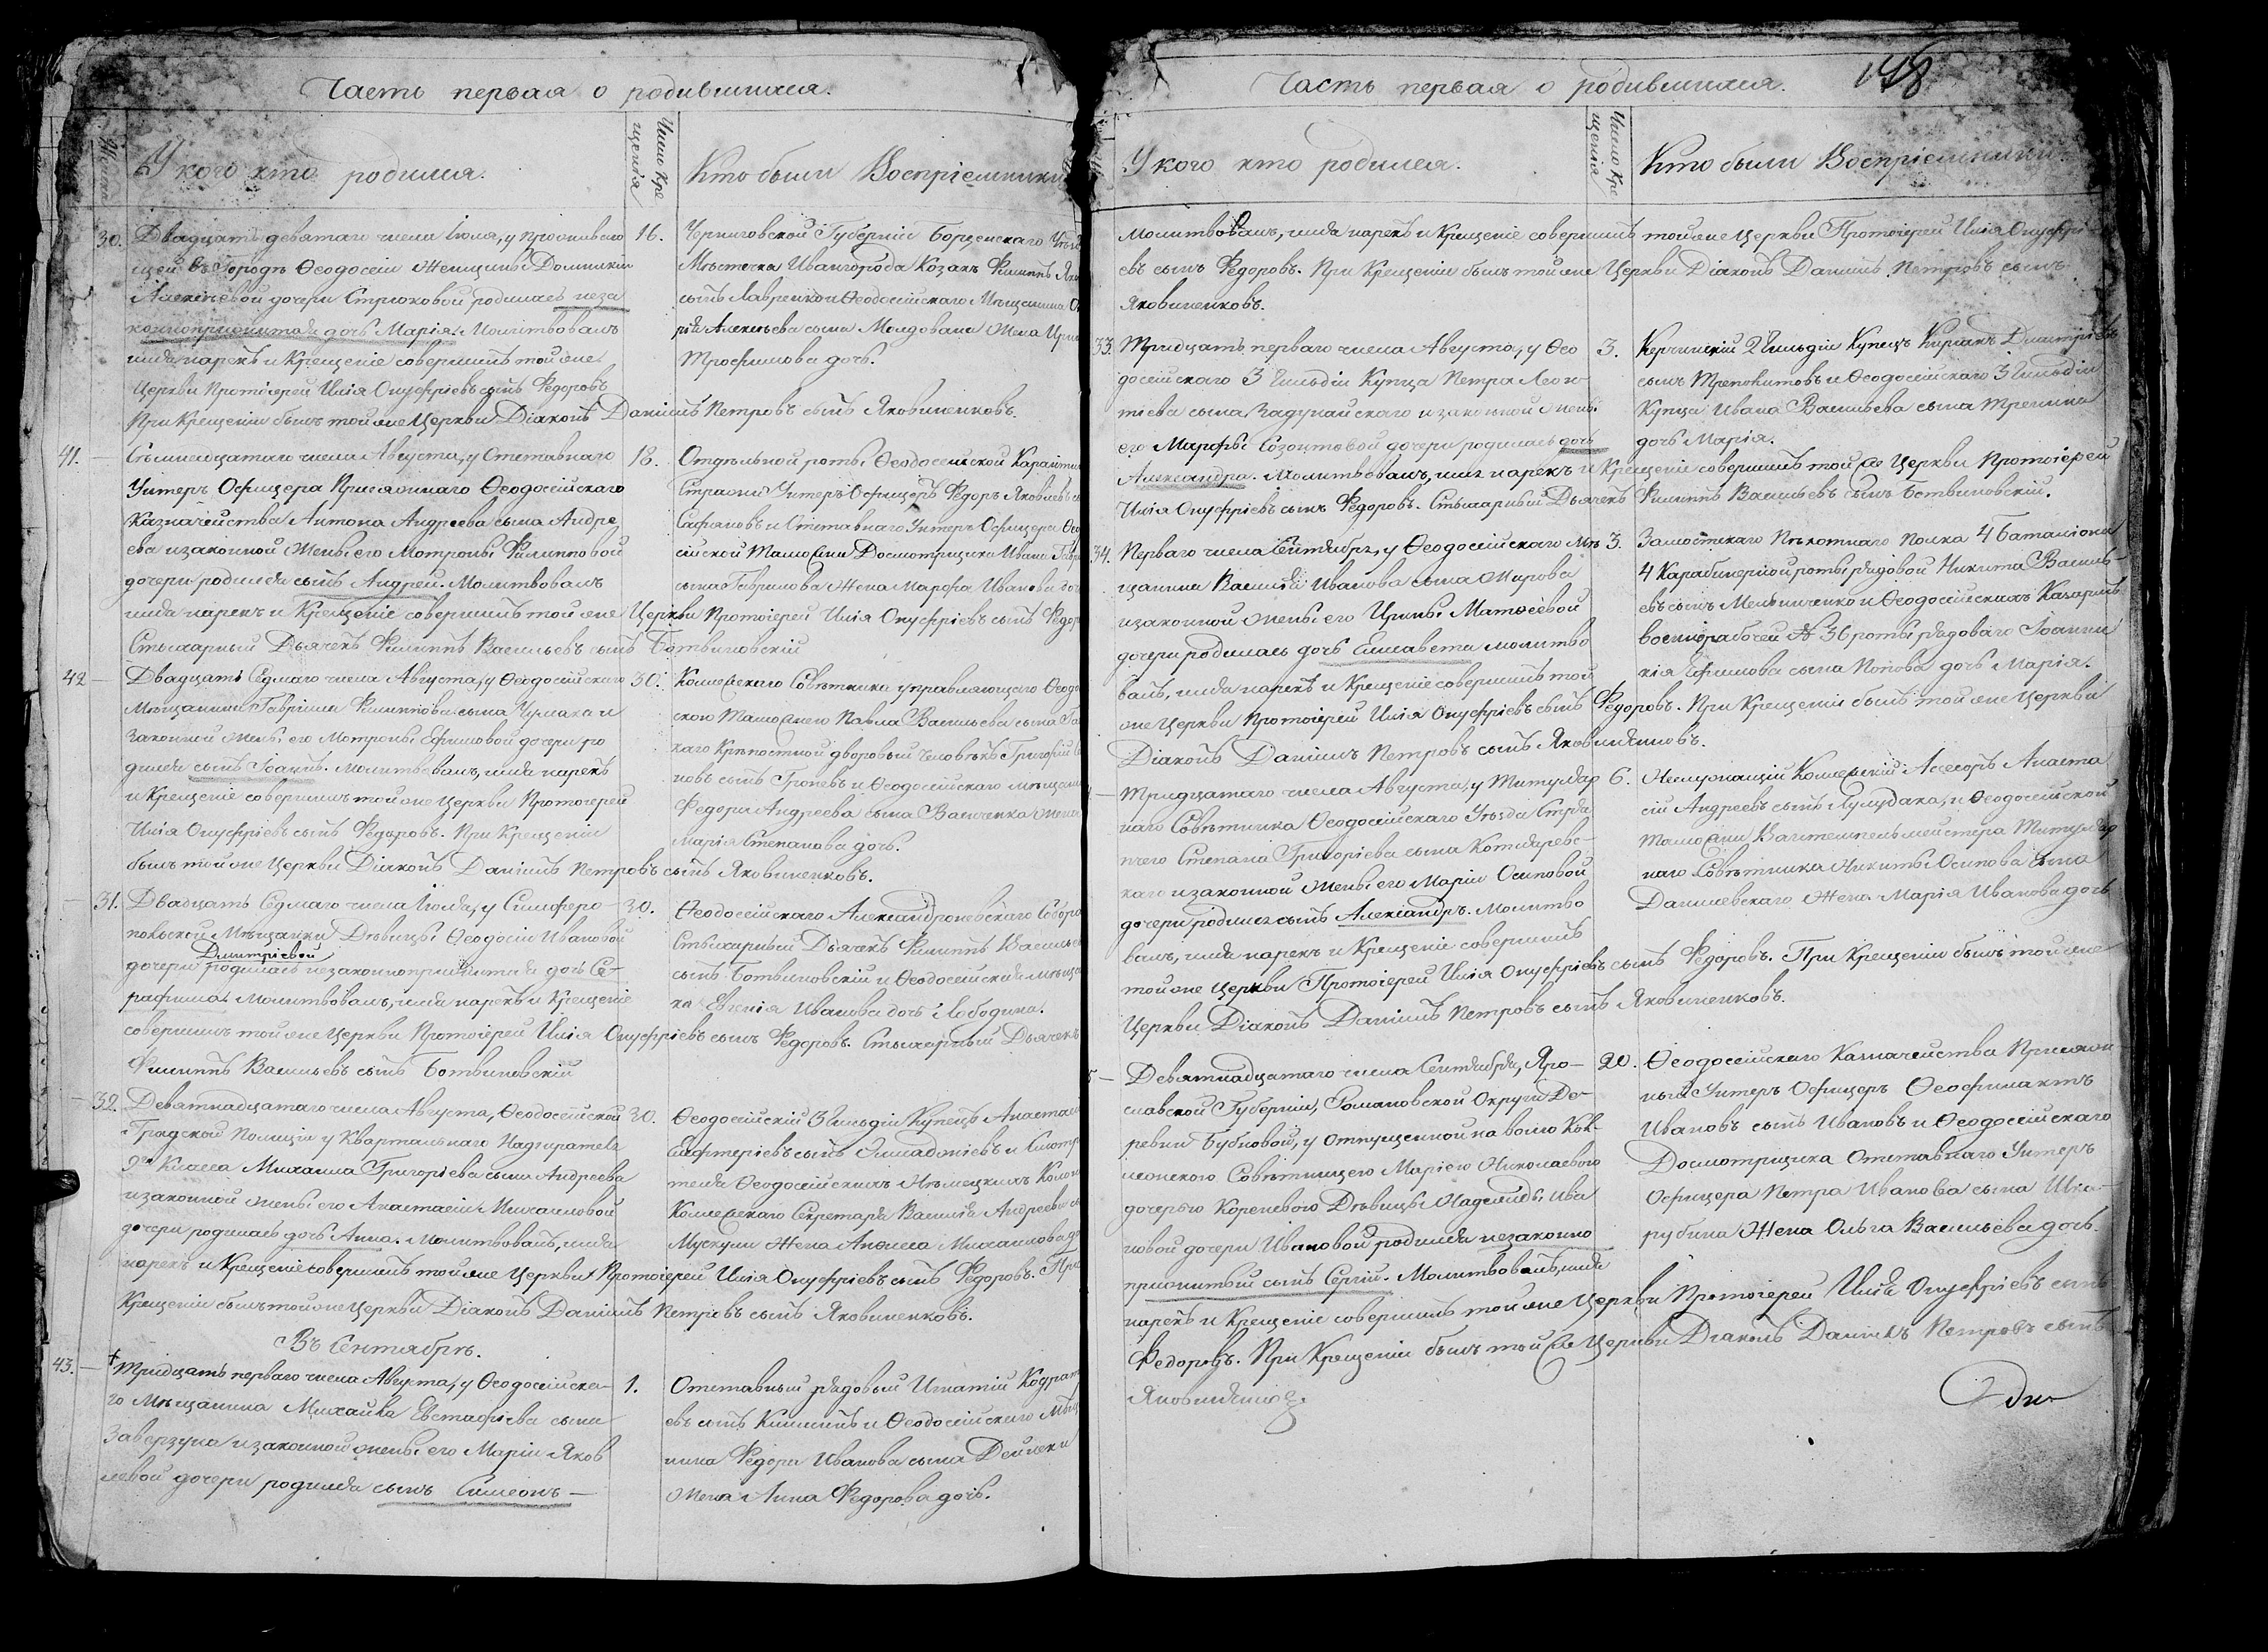 Часть первая о родившихся.
У кого кто родился.
Число Кре
щенія
Кто были Воспріемники
30. Двадцать девятаго числа Іюля, у проживаю 16.
щей въ Городѣ Ѳеодосіи Женщины Домникіи
Алексѣевой дочери Стрюковой родилась неза
конноприжитая дочь Марія. Молитвовалъ
имя нарекъ и Крещеніе совершилъ той же
Церкви Протоіерей Илія Онуфріевъ сынъ Ѳедоровъ
При Крещеніи былъ той же Церкви Діаконъ Даніилъ Петровъ сынъ Яковиненковъ.
Черниговской Губерніи Борзенскаго
Мѣстечка Ивангорода Козакъ Филиппъ
сынъ Лавренко и Ѳеодосійскаго Мѣщанина
Алексѣева сына Молдована Жена
Трофимова дочь.
41. Съмнадцатаго числа Августа, у Отставнаго 18.
Унтеръ Офицера Присяжнаго Ѳеодосійскаго
Казначейства Антона Андреева сына Андре
ева и законной Жены его Мотроны Филипповой
дочери родился сынъ Андрей. Молитвовалъ
имя нарекъ и Крещеніе совершилъ той же Церкви Протоіерей Илія Онуфріевъ сынъ
Стыхарный Дьячекъ Филиппъ Васильевъ сынъ Ботвиновскій
Отдѣльной роты Ѳеодосійской
Стражи Унтеръ Офицеръ Ѳедоръ
Сафановъ и Отставнаго Унтеръ Офицера
сійской Таможни Досмотрщика Ивана
сына Гаврилова Жена Марфа Иванова
42 Двадцать Седмаго числа Августа, у Ѳеодосійскаго 30.
Мѣщанина Гавріила Филиппова сына Чумака и
Законной Жены его Мотроны Ефимовой дочери ро
дился сынъ Іоаннъ. Молитвовалъ, имя нарекъ
и Крещеніе совершилъ той же Церкви Протоіерей
Илія Онуфріевъ сынъ Ѳедоровъ. При Крещеніи
былъ той же Церкви Діаконъ Даніилъ Петровъ сынъ Яковиненковъ.
Коллежскаго Совѣтника управляющаго
скою Таможнею Павла Васильева сына
каго Крѣпостной дворовый Человѣкъ Григорій
новъ сынъ Грачевъ и Ѳеодосійскаго
Федора Андреева сына
Марія Степанова дочь.
31. Двадцать Седмаго числа Іюля, у Симферо 30.
польской Мѣщанки Дѣвицы Ѳеодосіи Ивановой
Димитріевой
дочери родилась незаконноприжитая дочь Се-
рафима. Молитвовалъ, имя нарекъ и Крещеніе
совершилъ той же Церкви Протоіерей Илія Онуфріевъ сынъ Ѳедоровъ. Стыхарный Дьячекъ
Филиппъ Васильевъ сынъ Ботвиновскій
Ѳеодосійскаго Александроневскаго
Стыхарный Дьячекъ Филиппъ
сынъ Ботвиновскій и Ѳеодосійская
ка Евгенія Иванова дочь Лободина.
32. Девятнадцатаго числа Августа, Ѳеодосійской 30.
Градской Полиціи у Квартальнаго Надзирателя
9го Класса Михаила Григоріева сына Андреева
и законной Жены его Анастасіи Михаиловой
дочери родилась дочь Анна. Молитвовалъ, имя
нарекъ и Крещеніе совершилъ той же Церкви Протоіерей Илія Онуфріевъ сынъ Ѳедоровъ. При
Крещеніи былъ той же Церкви Діаконъ Даніилъ Петровъ сынъ Яковиненковъ.
Ѳеодосійскій 3 Гильдіи Купецъ
сынъ
теля Ѳеодосійскихъ Нѣмецкихъ
Коллежскаго Секретаря Василія Андреева
Жена Михаилова
Въ Сентябрѣ.
43. Тридцать перваго числа Августа, у Ѳеодосійска- 1.
го Мѣщанина Михаила Евстафіева сына
Заверзуна и законной Жены его Маріи Яков
левой дочери родился сынъ Симеонъ
Отставный рядовый Игнатій
евъ сынъ и Ѳеодосійскаго
нина Ѳедора Иванова сына Дейнеки
Жена Анна Ѳедорова дочь.
Часть первая о родившихся.
У кого кто родился.
Число Кре
щенія
Кто были Воспріемники.
Молитвовалъ, имя нарекъ и Крещеніе совершилъ той же Церкви Протоіерей Илія Онуфрі
евъ сынъ Ѳедоровъ. При Крещеніи былъ той же Церкви Діаконъ Даніилъ Петровъ сынъ
Яковиненковъ.
33. Тридцать перваго числа Августа, у Ѳео 3.
досійскаго 3 Гильдіи Купца Петра Леон
тіева сына Задунайскаго и законной Жены
его Марфы Созонтовой дочери родилась дочь
Александра. Молитвовалъ, имя нарекъ и Крещеніе совершилъ той же Церкви Протоіерей
Илія Онуфріевъ сынъ Ѳедоровъ. Стыхарный Дьячекъ Филиппъ Васильевъ сынъ Ботвиновскій.
Керченскій 2 Гильдіи Купецъ Киріакъ Димитріевъ
сынъ и Ѳеодосійскаго 3 Гильдіи
Купца Ивана Васильева сына
дочь Марія.
34. Перваго числа Сентября, у Ѳеодосійскаго Мѣ 3.
щанина Василія Иванова сына Жирова
и законной Жены его Ирины Матѳеевой
дочери родилась дочь Елисавета молитво
валъ, имя нарекъ и Крещеніе совершилъ той
же Церкви Протоіерей Илія Онуфріевъ сынъ Ѳедоровъ. При Крещеніи былъ той же Церкви
Діаконъ Даніилъ Петровъ сынъ
Замостскаго Пѣхотнаго Полка 4 Баталіона
4 Карабинерной роты рядовой Никита Василь-
евъ сынъ Мельниченко и Ѳеодосійскихъ Казармъ
военнорабочей № 36 роты рядоваго Іоанни
кія Ефимова сына Попова дочь Марія.
Тридцатаго числа Августа, у Титуляр 6.
наго Совѣтника Ѳеодосійскаго Уѣзда Стря
пчего Степана Григоріева сына Котляревс-
каго и законной Жены его Маріи Осиповой
дочери родился сынъ Александръ. Молитво
валъ, имя нарекъ и Крещеніе совершилъ
той же Церкви Протоіерей Илія Онуфріевъ сынъ Ѳедоровъ. При Крещеніи былъ той же
Церкви Діаконъ Даніилъ Петровъ сынъ Яковиненковъ.
Неслужащій Коллежскій Асесоръ Анаста
сій Андреевъ сынъ и Ѳеодосійской
Таможни Вагштемпельмейстера Титуляр
наго Совѣтника Никиты Осипова сына
Данилевскаго Жена Марія Иванова дочь
Девятнадцатаго числа Сентября, Яро- 20.
славской Губерніи, Романовской Округи Де-
ревни Бубновой, у отпущенной на волю Кол-
лежскою Совѣтницею Маріею Николаевою
дочерью Кореневою Дѣвицы Надежды Ива
новой дочери Ивановой родился незаконно
прижитый сынъ Сергій. Молитвовалъ, имя
нарекъ и Крещеніе совершилъ той же Церкви Протоіерей Илія Онуфріевъ сынъ
Ѳедоровъ. При Крещеніи былъ той же Церкви Діаконъ Даніилъ Петровъ сынъ
Ѳеодосійскаго Казначейства Присяж
ный Унтеръ Офицеръ Ѳеофилактъ
Ивановъ сынъ Ивановъ и Ѳеодосійскаго
Досмотрщика Отставнаго Унтеръ
Офицера Петра Иванова сына Шка-
рубина Жена Ольга Васильева дочь.